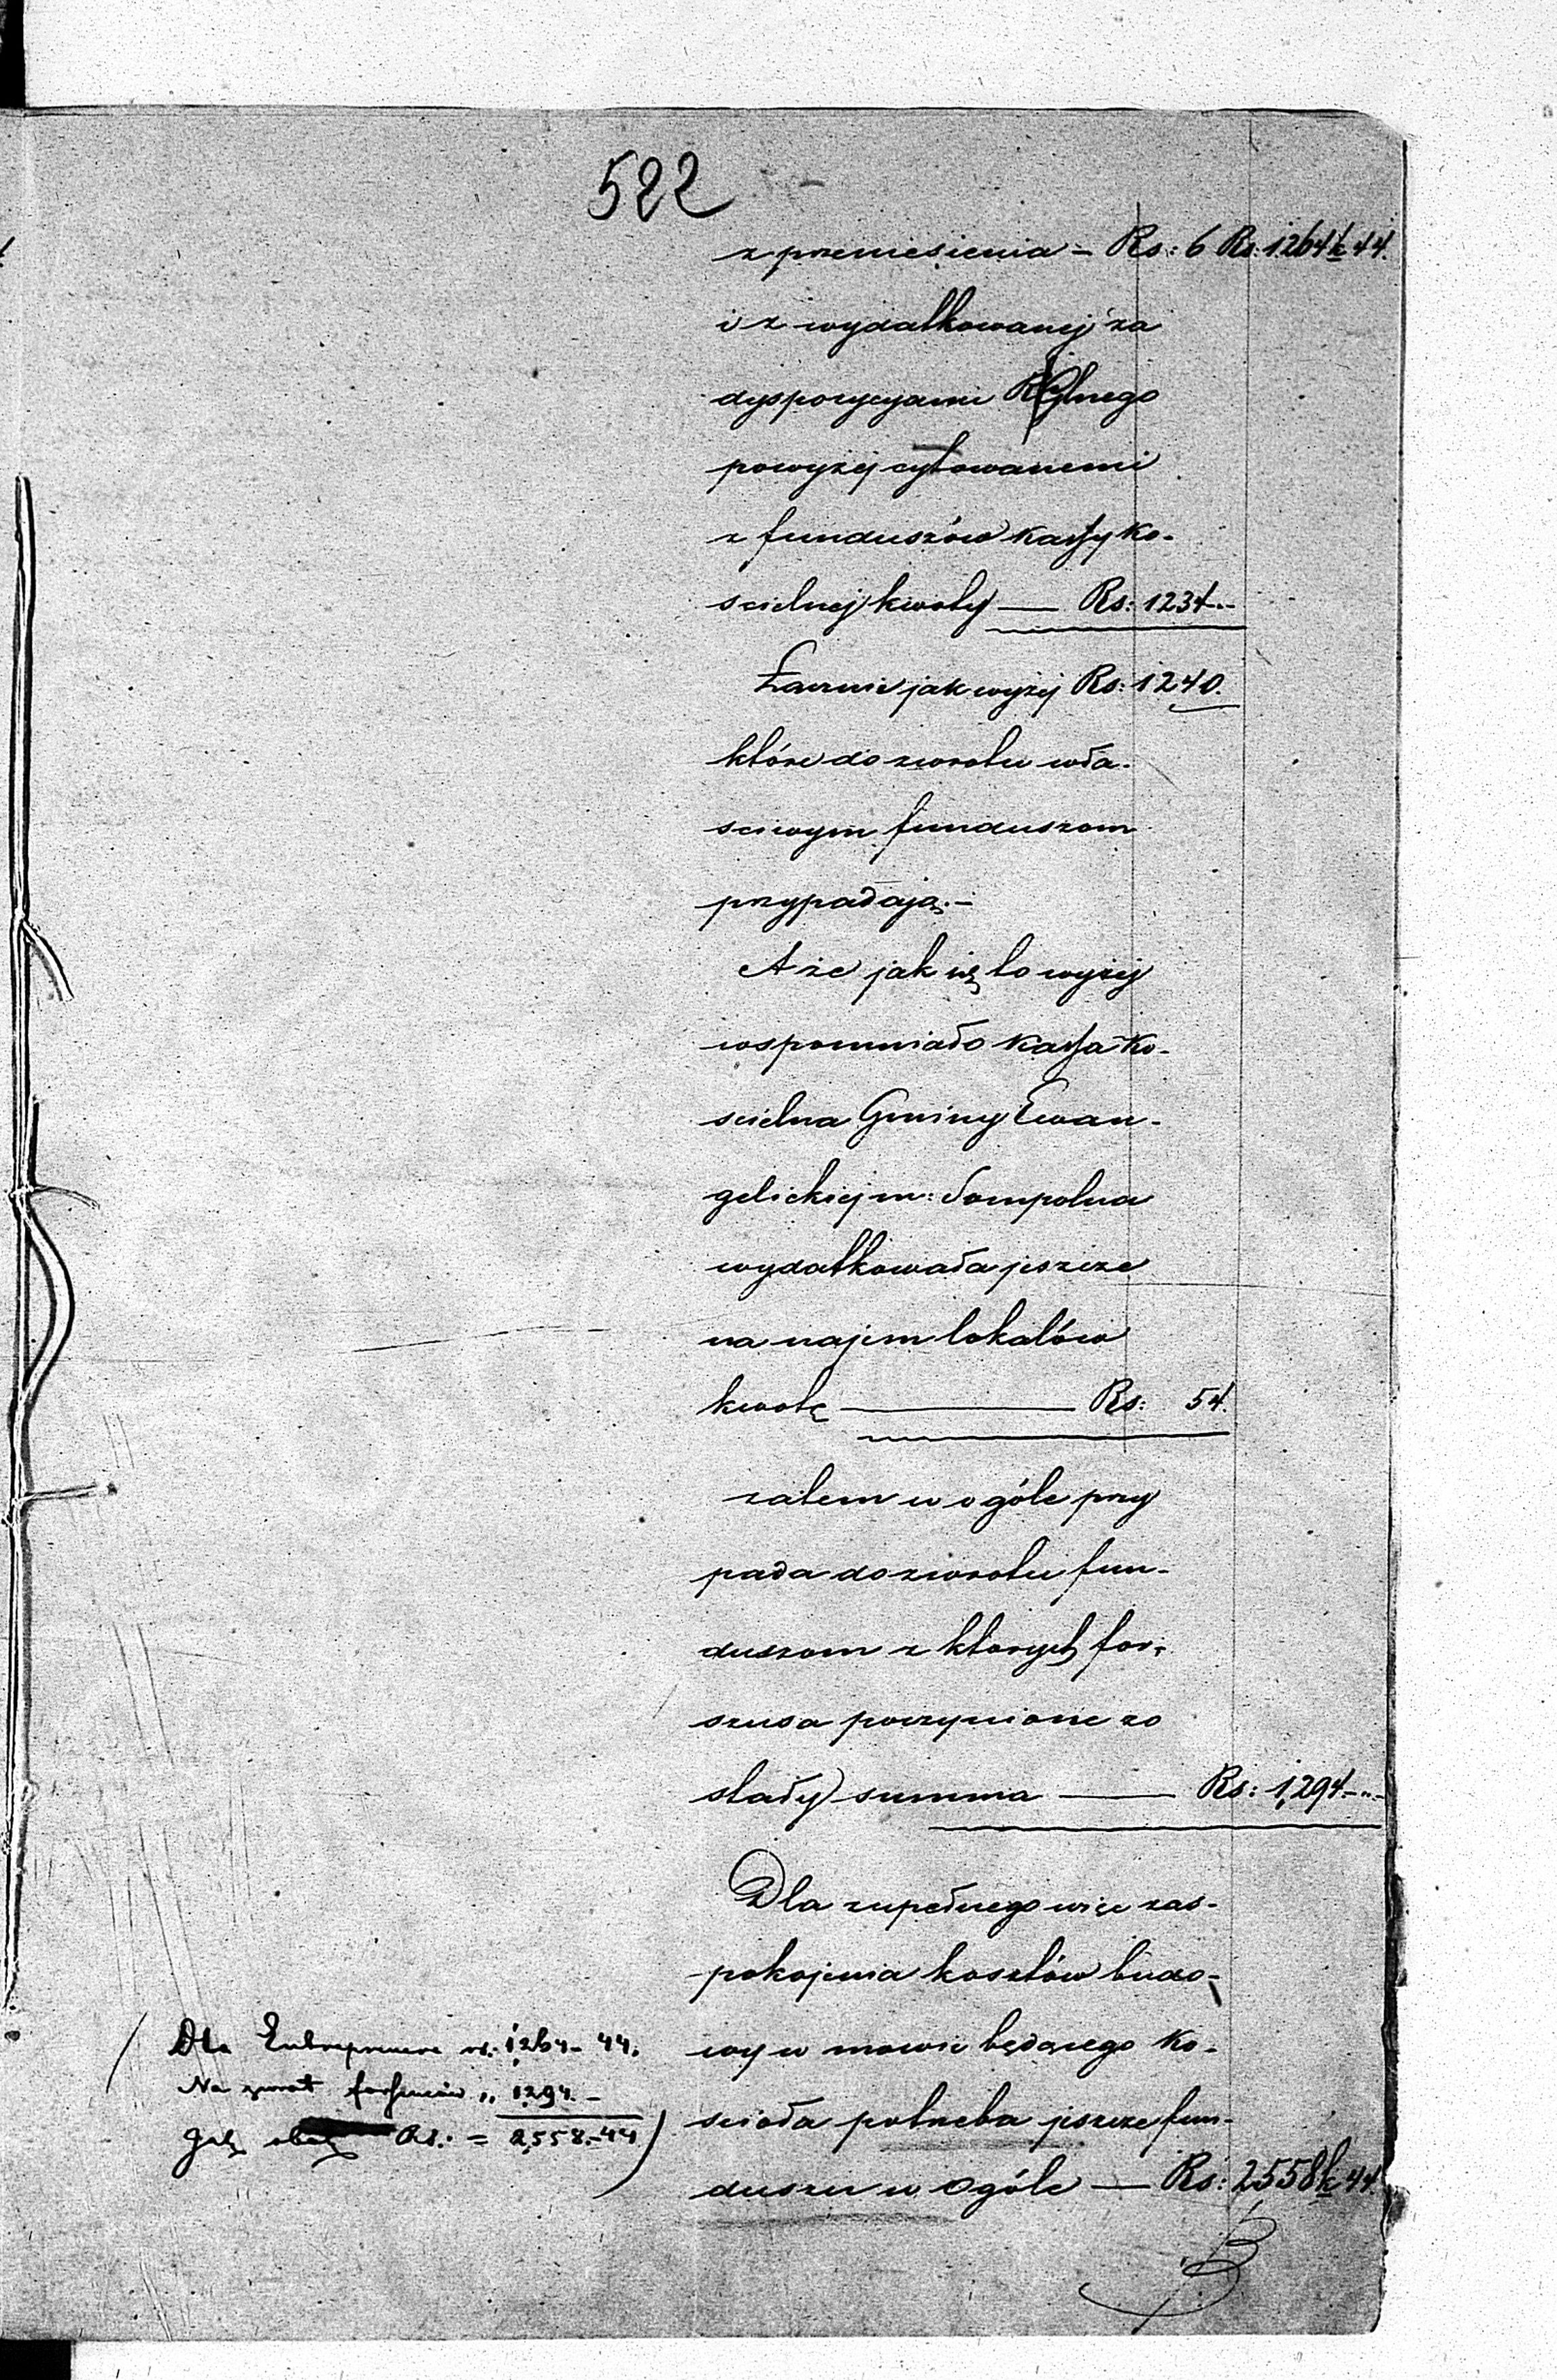 522
z przeniesienia – Rs: 6 Rs: 1264 k 44.
i z wydatkowanej za
dyspozycyami Glnego
powyżej cytowanemi
z funduszów kassy ko-
scielnej kwoty — Rs: 1234 –
Łącznie jak wyżej Rs: 1240.
które do zwrotu wła-
sciwym funduszom
przypadają. –
A że jak się to wyżej
wspomniało kassa ko-
scielna Gminy Ewan-
gelickiej m: Sompolna
wydatkowała jeszcze
na najem lokalów
kwotę — Rs: 54.
zatem w ogóle przy
pada do zwrotu fun-
duszom z ktorych for-
szusa poczynione zo
stały summa — Rs: 1,294 –
Dla zupełnego więc zas-
pokojenia kosztów budo-
wy w mowie będącego Ko-
scioła potrzeba jeszcze fun-
duszu w ogóle — Rs: 2558 k 44.
Dla Entreprenera rs. 1264 – 44.
Na zwrot forszusów „ 1,294. –
Rs: = 2,558. – 44)